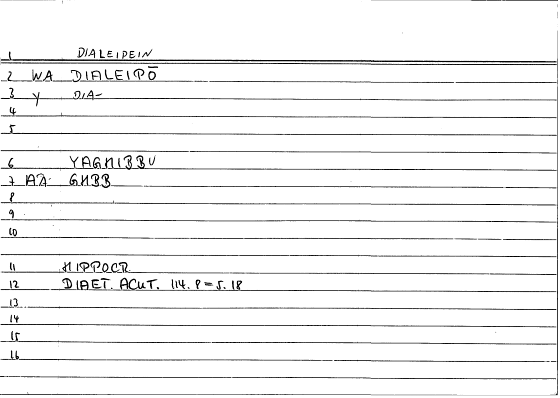 1 DIALEIPEIN
2 WA DIALEIPŌ
3 Y DIA-
4
5
6 YAGHIBBU
7 AA GHBB
8
9
10
11 HIPPOCR
12 DIAET. ACUT. 114. 8 = 5. 18
13
14
15
16